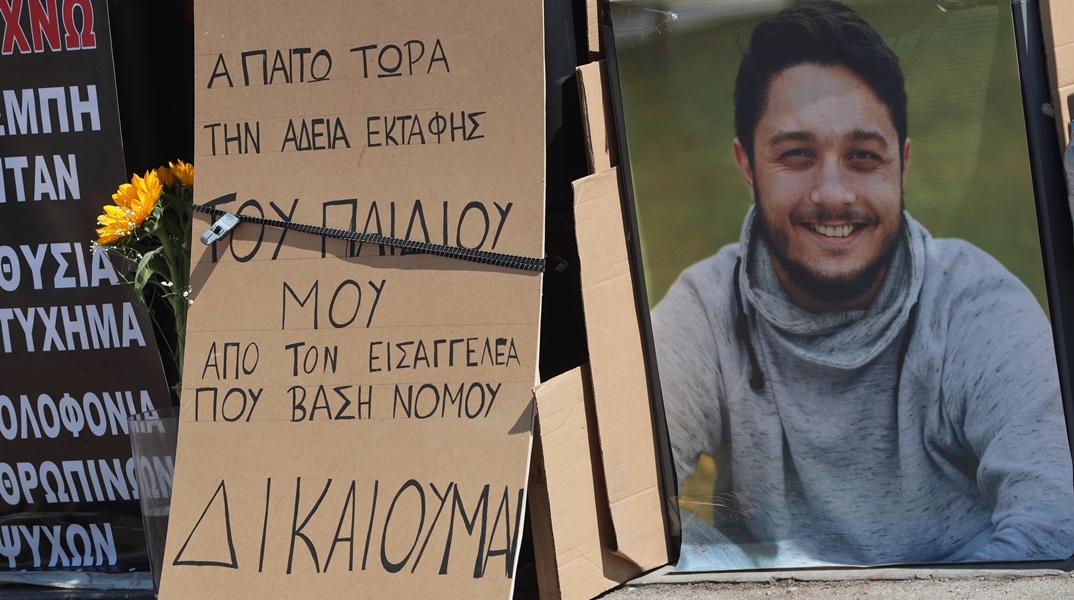 ΧΝΩ
ΕΜΠΗ
ΗΤΑΝ
ΘΥΣΙΑ
ΤΥΧΗΜΑ
ΟΛΟΦΟΝΙΑ
ΘΡΩΠΙΝΩΝ
ΨΥΧΩΝ
ΑΠΑΙΤΩ ΤΩΡΑ
ΤΗΝ ΑΔΕΙΑ ΕΚΤΑΦΗΣ
ΤΟΥ ΠΑΙΔΙΟΥ
ΜΟΥ
ΑΠΟ ΤΟΝ ΕΙΣΑΓΓΕΛΕΑ
ΠΟΥ ΒΑΣΗ ΝΟΜΟΥ
ΔΙΚΑΙΟΥΜΑΙ